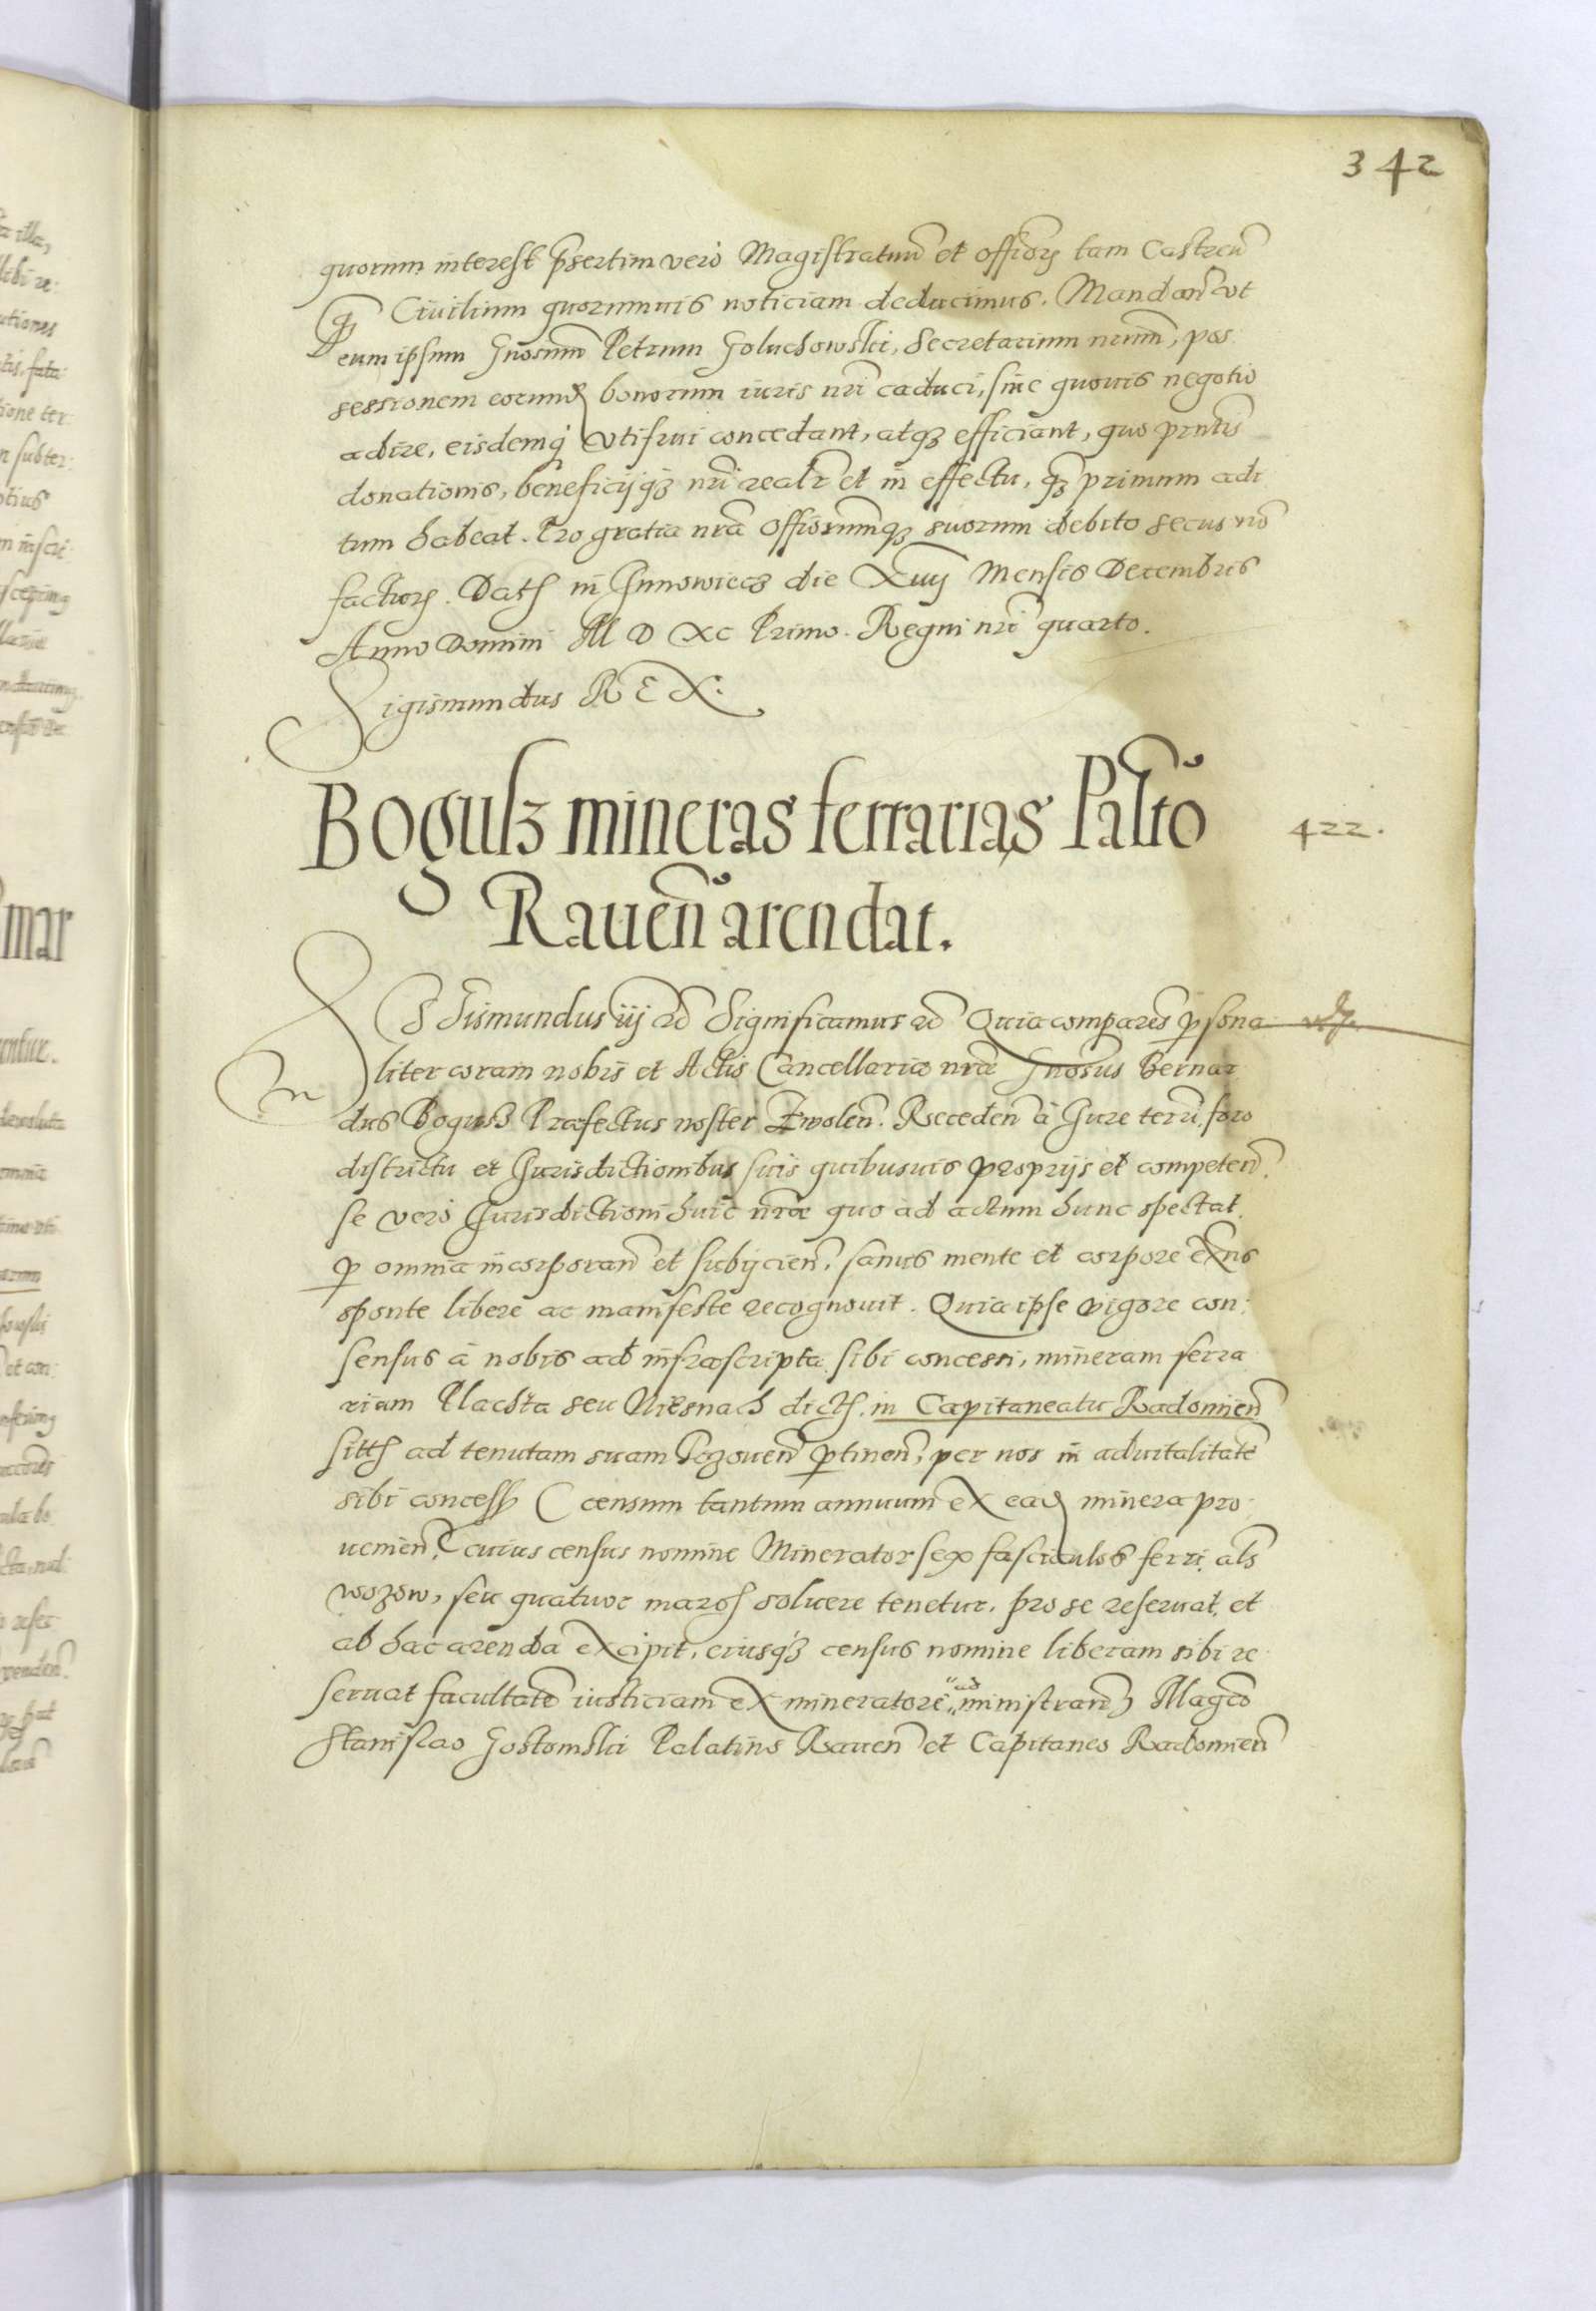 342
quorum interest p̃sertim verò Magistratuũ et offiorʒ tam Castreñ
q̃ʒ Ciuilium quorumuis noticiam deducimus. Mandañ vt
eum ipsum Gñosum Petrum Goluchowski, Secretarium nr̃um, pos
sessionem eorumd bonorum iuris nr̃i caduci, sine quouis negotio
adire, eisdemq́ vtifrui concedant, atqʒ efficiant, quo pr̃ntis
donationis, beneficijqʒ́ nr̃i realr̃ et in effectu, q̃ʒ primum adi
tum habeat. Pro gratia nr̃a offiorumqʒ suorum debito secus nõ
facturʒ. Datʒ in
die
Mensis Decembris
Anno Domini M D XC Primo. Regni nr̃i quarto.
Sigismundus REX.
Bogusz mineras ferrarias Paltõ
Raueñ arendat.
422.
SIGismundus iij rc̃ Significamus rc̃ Quia comparẽs p̱sona
liter coram nobis et Actis Cancellariæ nr̃æ Gñosus Bernar
dus Bogusz Præfectus noster Zwoleñ. Receden̄ à Iure terũ, foro
districtu et Iurisdictionibus suis quibusuis proprijs et competeñ.
se verò Iurisdictioni huic nr̃æ quo ad actum hunc spectat
p̱ omnia incorporañ et subijcieñ, sanus mente et corpore ex̃ns
sponte libere ac manifeste recognouit. Quia ipse vigore con
sensus à nobis ad infrascripta sibi concessi, mineram ferra
riam Plachta seu Niesnach dictʒ. in Capitaneatu Radomieñ
sittʒ ad tenutam suam Pezoueñ p̱tineñ, per nos in aduitalitatẽ
sibi concessʒ ( censum tantum annuum ex ead minera pro
uenieñ, ) cuius census nomine Minerator sex fasciculos ferri, als̃
wozow, seu quatuor marcʒ soluere tenetur, pro se reseruat, et
ab hac arenda excipit, eiusqʒ́ census nomine liberam sibi re
seruat facultatẽ iusticiam ex mineratore ad ministrañ) Magco
Stanislao Gostomski Palatino Raueñ et Capitaneo Radomieñ